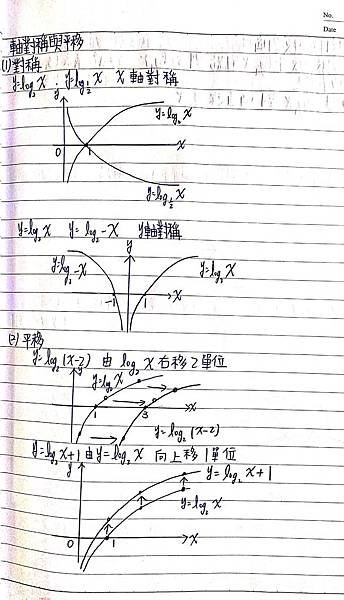 No.
Date
軸對稱與平移
(1)對稱
y=log₂X y=log½X X軸對稱
y
y=log₂X
0 1 X
y=log½X
y=log₂X y=log₂-X y軸對稱
y
y=log₂-X y=log₂X
-1 1 X
(2)平移
y=log₂(X-2) 由 log₂X 右移2單位
y
y=log₂X
1 3 X
y=log₂(X-2)
y=log₂X+1 由 y=log₂X 向上移1單位
y
y=log₂X+1
y=log₂X
0 1 X